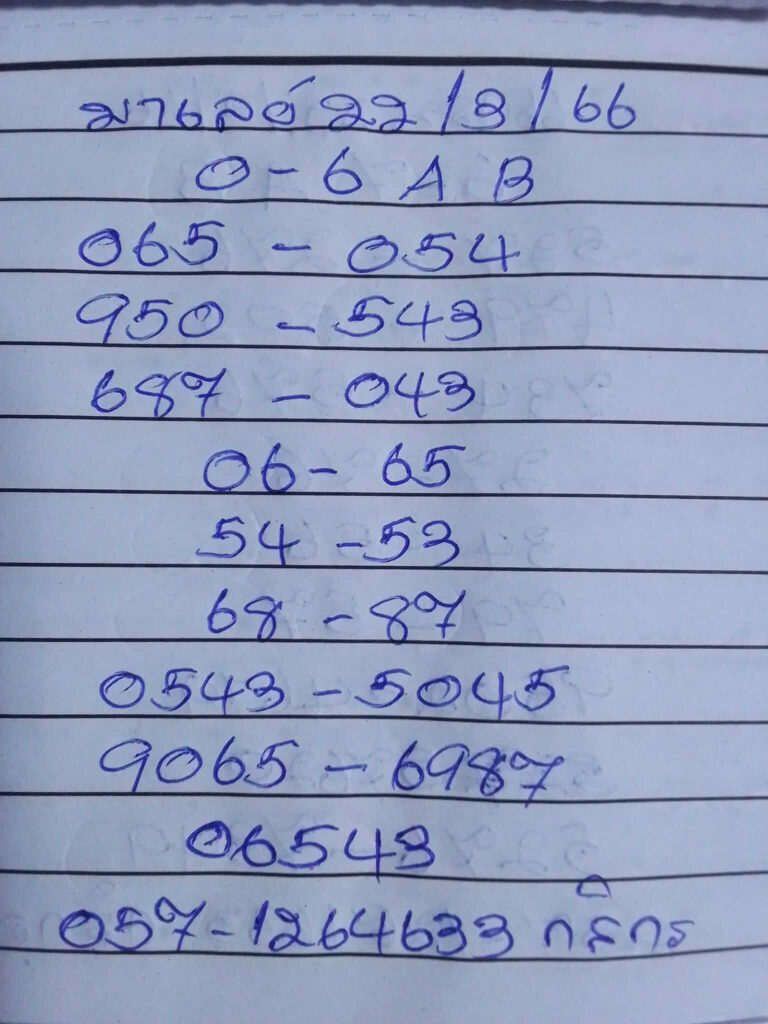 มาเลย์ 22/3/66
0-6 A B
065 - 054
950 - 543
687 - 043
06 - 65
54 - 53
68 - 87
0543 - 5045
9065 - 6987
06543
057-1264633 กสิกร